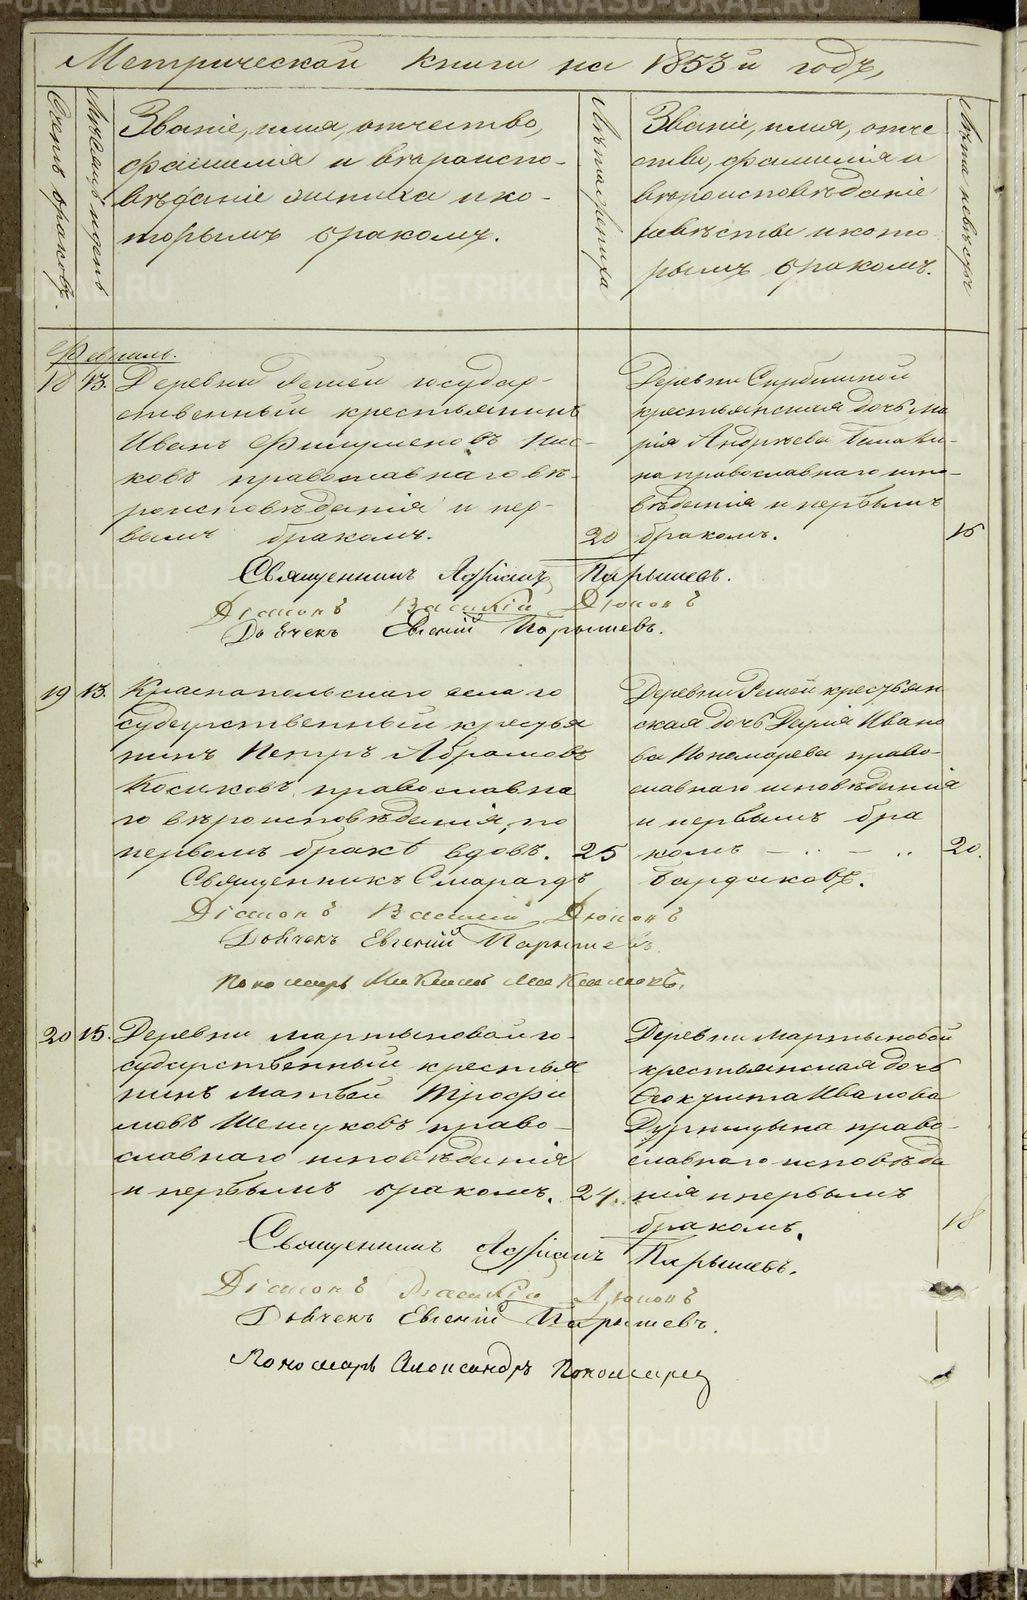 Метрической книги на 1853й годъ,
Счетъ браковъ.
Мѣсяцъ и день
Званіе, имя, отчество,
фамилія и вѣроиспо-
вѣданіе жениха и ко-
торымъ бракомъ.
Лѣта жениха
Званіе, имя, отче
ство, фамилія и
вѣроисповѣданіе
невѣсты и кото
рымъ бракомъ.
Лѣта невѣсты
Февраль.
18 13. Деревни Решей государ-
ственный крестьянинъ
Иванъ Филуменовъ
ковъ православнаго вѣ-
роисповѣданія и пер-
вымъ бракомъ. 20
Деревни Скрбишной
крестьянская дочь Ма
рія Андреева
на православнаго испо-
вѣданія и первымъ
бракомъ. 16
Священникъ Адріанъ Парышевъ.
Діаконъ Василій Дюковъ
Дьячекъ Евгеній Парышевъ.
19 13. Краснопольскаго села го
сударственный кресья
нинъ Петръ Абрамовъ
Косиковъ, православна
го вѣроисповѣданія, по
первомъ бракѣ вдовъ. 25
Деревни Решей крестьян
ская дочь Дарія Ивано
ва Пономарева право-
славнаго исповѣданія
и первымъ бра
комъ — .. — .. 20.
Священникъ Смарагдъ Бардаковъ.
Діаконъ Василій Дюковъ
Дьячекъ Евгеній Парышевъ
Пономарь
20 15. Деревни Мартыновой го-
сударственный крестья
нинъ Матвей Трофи
мовъ Шешуковъ право-
славнаго исповѣданія
и первымъ бракомъ. 24.
Деревни Мартыновой
крестьянская дочь
Ѳеоктиста Иванова
Дурницына право-
славнаго исповѣда
нія и первымъ
бракомъ. 18
Священникъ Адріанъ Парышевъ.
Діаконъ Василій Дюковъ
Дьячекъ Евгеній Парышевъ.
Пономарь Александръ Пономарев
METRIKI.GASO-URAL.RU